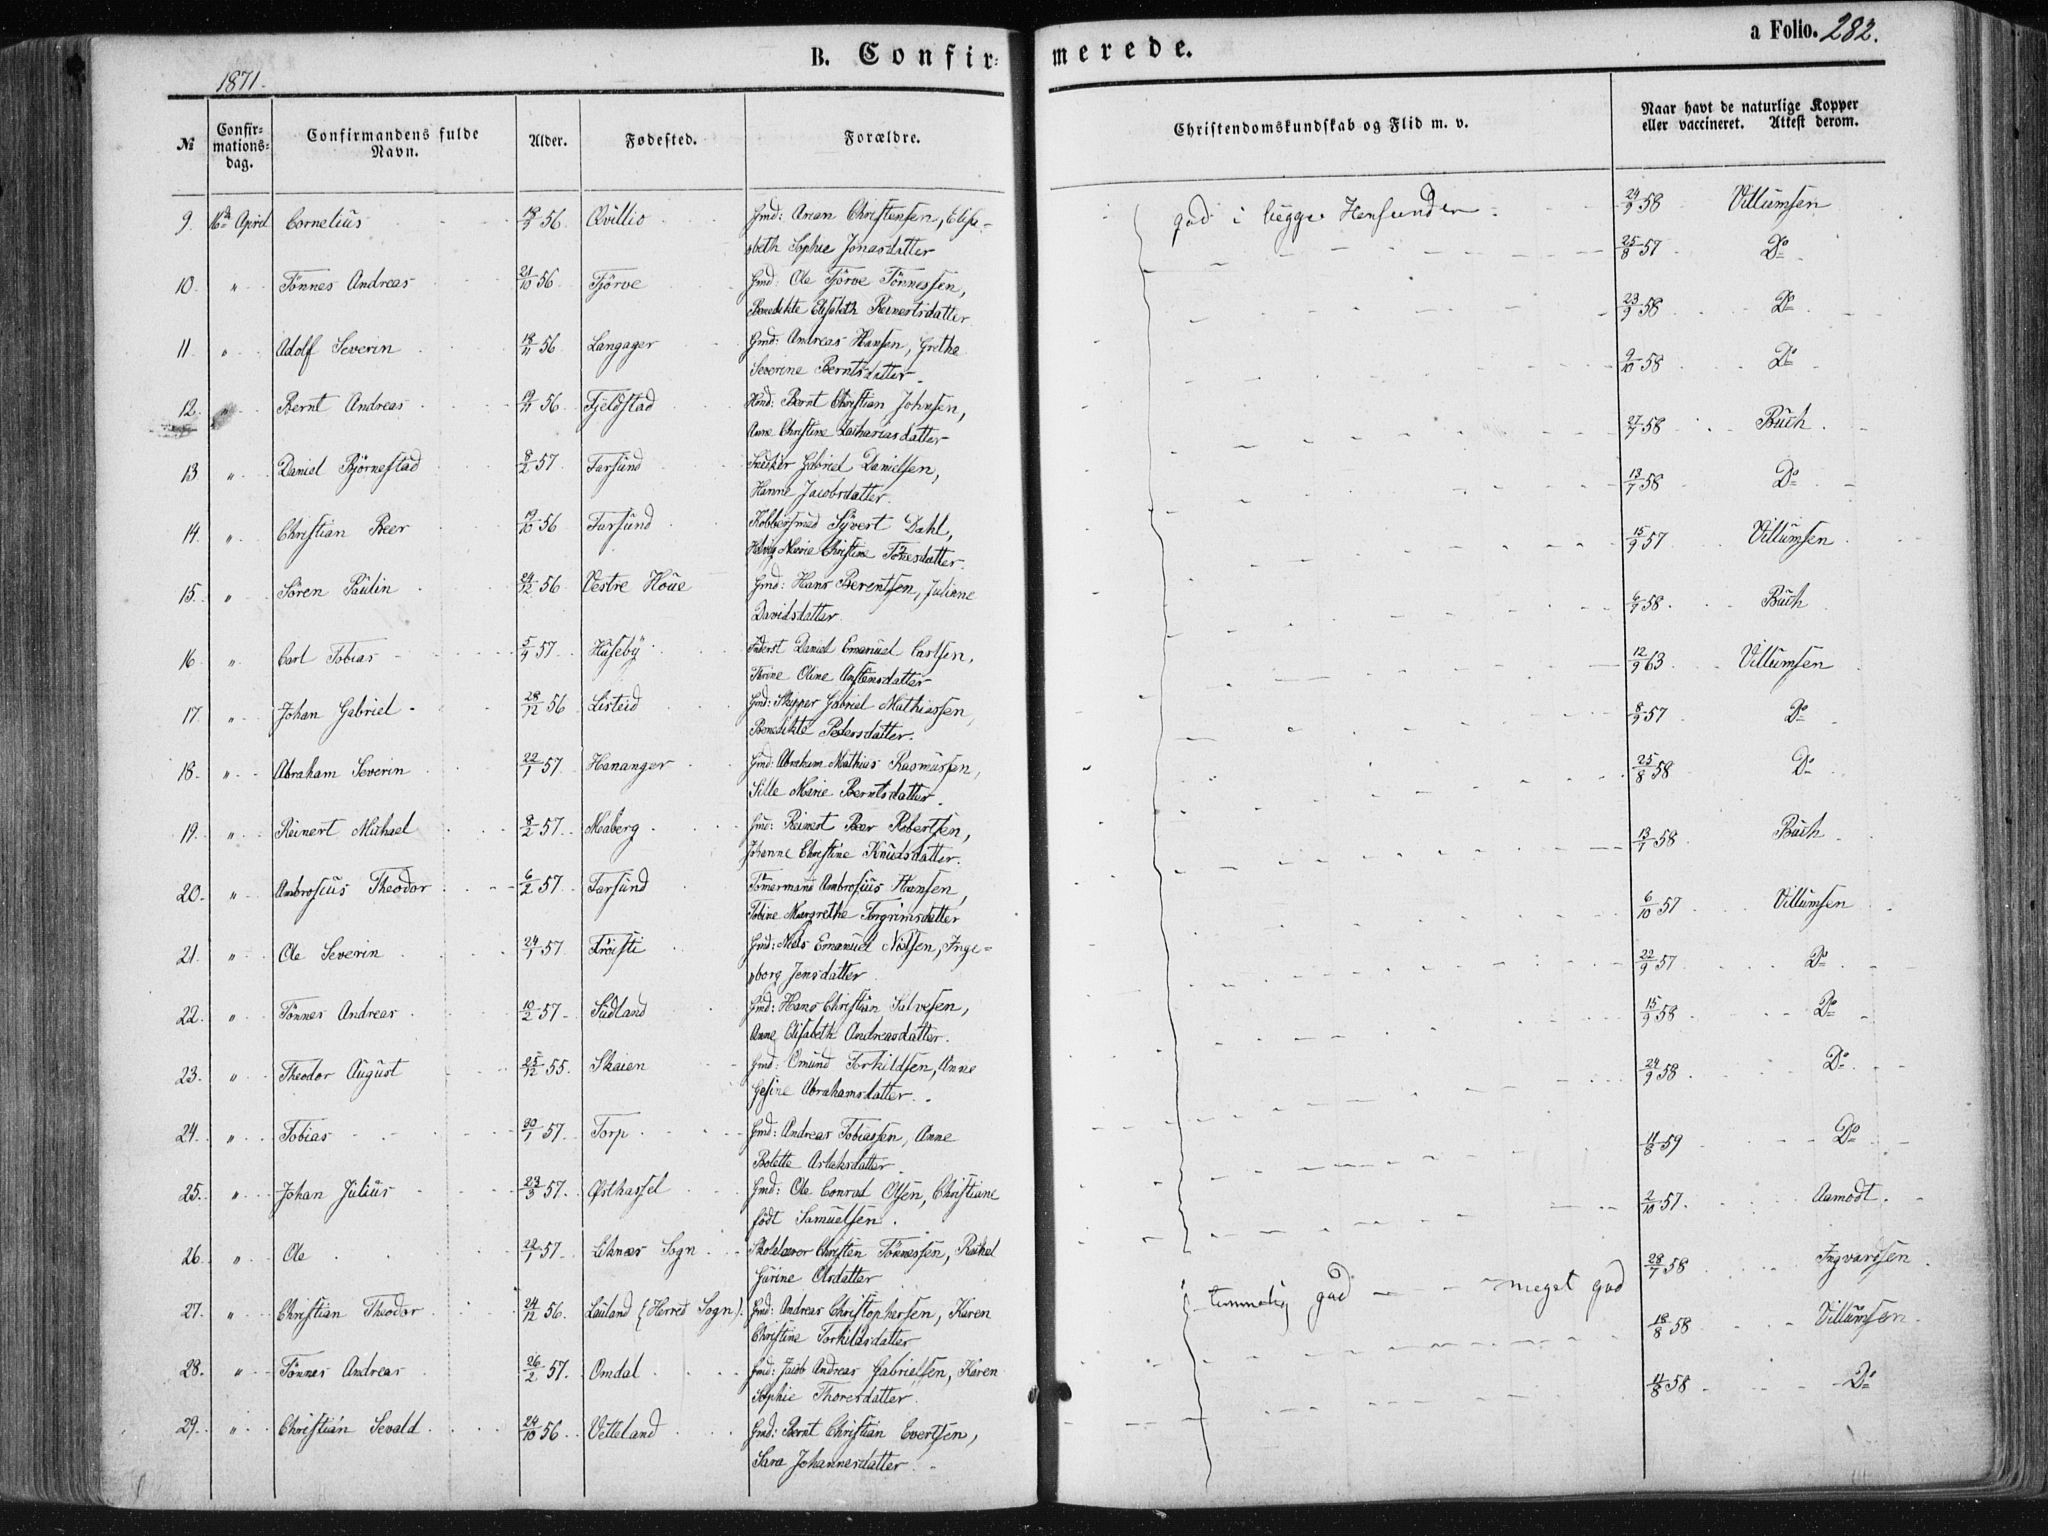 B. Confir-
merede.
a Folio. 282.
1871.
№
Confir-
mations-
dag.
Confirmandens fulde
Navn.
Alder.
Fødested.
Forældre.
Christendomskundskab og Flid m. v.
Naar havt de naturlige Kopper
eller vaccineret. Attest derom.
9. 16de April Cornelius 56 Qvillio Gmd: Anan Christensen, Elisa-
beth Sophie Jonasdatter
10. " Tönnes Andreas 21/10 56 Tjörve Gmd: Ole Tjörve Tönnessen,
Benedikte Elisabeth Reinertsdatter
11 " Adolf Severin 18/11 56 Langager Gmd: Andreas Hansen, Grethe
Severine Berntsdatter
12. " Bernt Andreas 19/11 56 Fjeldstad Gmd: Bernt Christian Johnsen,
Anne Christine Zachariasdatter
13 " Daniel Björnestad 8/2 57. Farsund Snedker Gabriel Danielsen,
Hanne Jacobsdatter.
14. " Christian Beer 19/10 56 Farsund Kobbersmed Syvert Dahl,
Hedvig Marie Christine Tönnesdatter.
15. " Sören Paulin 24/12 56 Vestre Houe Gmd: Hans Berentsen, Juliane
Davidsdatter.
16 " Carl Tobias 57. Huseby Inderst Daniel Emanuel Carlsen,
Thrine Oline Anstensdatter
17. " Johan Gabriel 28/12 56 Listeid Gmd: Skipper Gabriel Mathiassen,
Benedikte Pedersdatter.
18. " Abraham Severin 22/1 57 Hananger Gmd: Abraham Mathias Rasmussen,
Sille Marie Berntsdatter.
19. " Reinert Michael 8/2 57. Meaberg Gmd: Reinert Beer Robertsen,
Johanne Christine Knudsdatter.
20. " Ambrosius Theodor 6/2 57. Farsund Tömermand Ambrosius Hansen,
Tobine Margrethe Torgrimsdatter
21. " Ole Severin 24/1 57. Tröisti Gmd: Niels Emanuel Nilsen, Inge-
borg Jensdatter
22. " Tönnes Andreas 10/2 57. Sudland Gmd: Hans Christian Salvesen,
Anne Elisabeth Andreasdatter.
23. " Theodor August 25/12 55. Skaien Gmd: Omund Torkildsen, Anne
Gesine Abrahamsdatter.
24. " Tobias 30/1 57. Torp Gmd: Andreas Tobiassen, Anne
Bolette Aslaksdatter
25. " Johan Julius 23/3 57. Østhassel Gmd: Ole Conrad Olsen, Christiane
født Samuelsen.
26. " Ole 22/1 57. Leknæs Sogn Skolelærer Christen Tönnessen, Rachel
Gurine Olsdatter
27. " Christian Theodor 24/12 56. Lauland (Herred Sogn). Gmd: Andreas Christophersen, Karen
Christine Torkildsdatter
28. " Tönnes Andreas 26/2 57. Omdal Gmd: Jacob Andreas Gabrielsen, Karen
Sophie Thoresdatter.
29. " Christian Sevald 24/10 56 Vetteland Gmd: Bernt Christian Evertsen,
Sara Johannesdatter
god i begge Henseender.
temmelig god — meget god
24/9 58 Villumsen
25/8 57 Do
23/9 58 Do
9/10 58 Do
27/7 58 Buch
13/7 58 Do
15/9 57 Villumsen
6/7 58. Buch
12/9 63 Villumsen
8/9 57 Do
25/8 58 Do
13/1 58 Buch
6/10 57 Villumsen
22/9 57 Do
15/9 58 Do
24/9 58 Do
11/8 59 Do
2/10 57. Aamodt.
28/7 58 Ingvardsen.
18/8 58 Villumsen.
11/8 58 Do